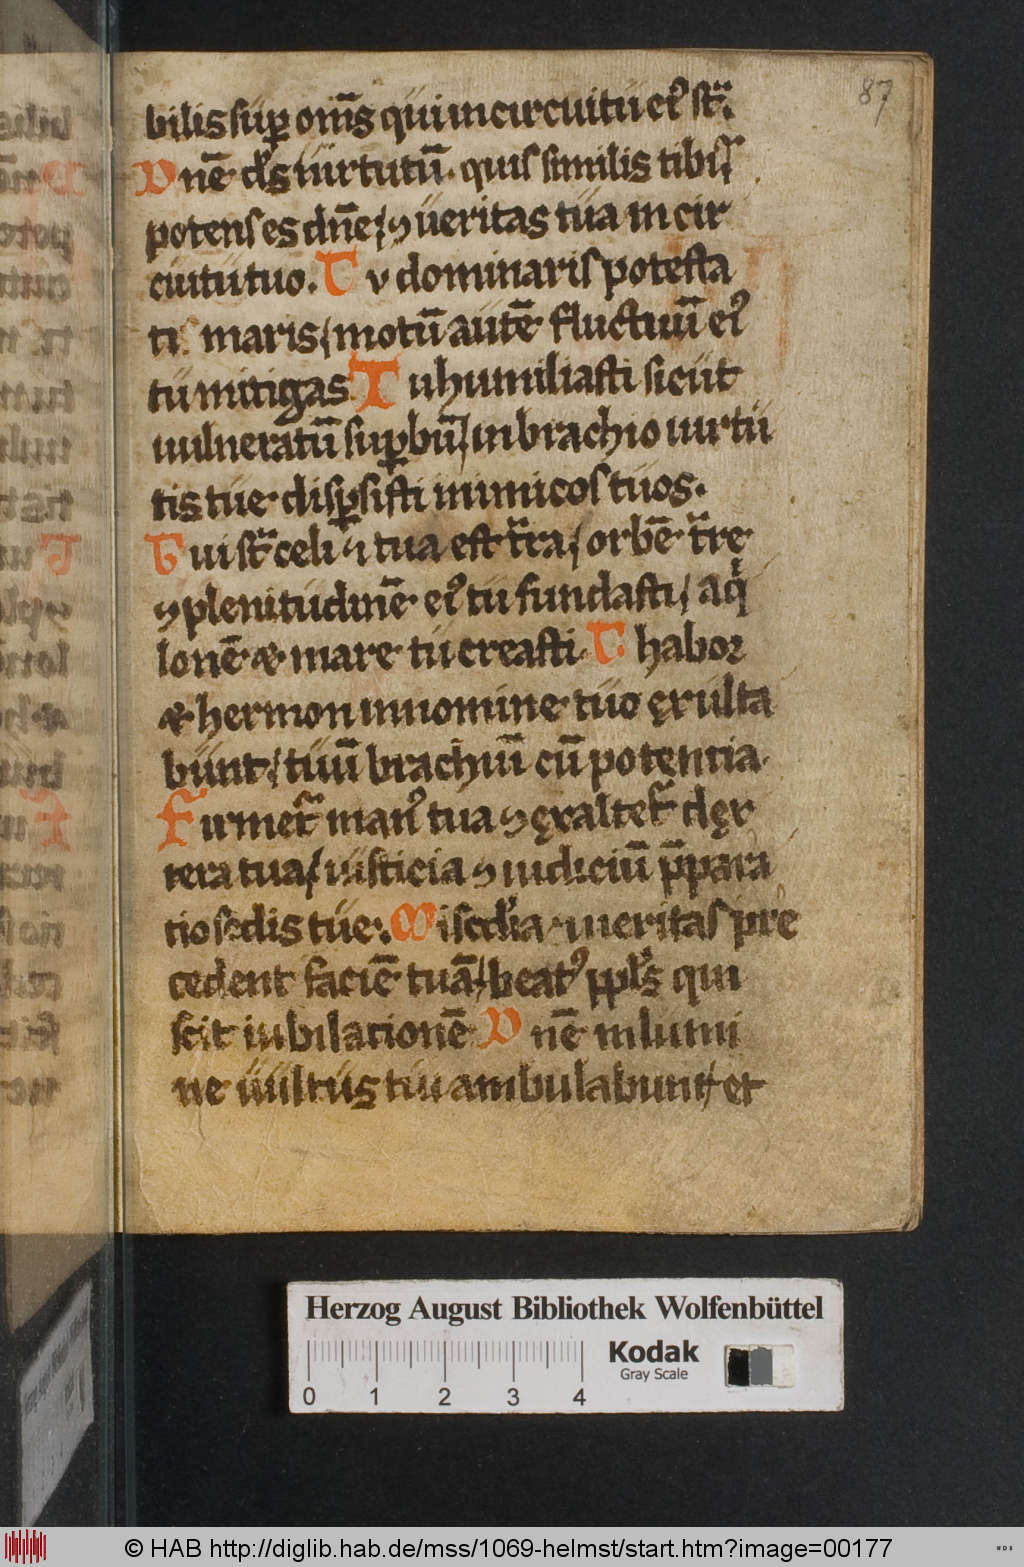 87
bilis sup om̄s qui in circuitu ei⁹ st̄.
Dn̄e d̄s uirtutū. quis similis tibi
potens es dn̄e / ⁊ ueritas tua in cir
cuitu tuo. Tv dominaris potesta
ti maris / motū autē fluctuū ei⁹
tu mitigas Tu humiliasti sicut
uulneratū suꝑbū / in brachio uirtu
tis tue disꝑsisti inimicos tuos.
Tui st̄ celi ⁊ tua est t̄ra / orbē t̄re
⁊ plenitudinē ei⁹ tu fundasti / aq
lonē & mare tu creasti. Thabor
& hermon in nomine tuo exulta
bunt / tuū brachiū cū potentia.
Firmet̄ man⁹ tua ⁊ exaltet̄ dex
tera tua / iusticia ⁊ iudiciū p̄para
tio sedis tue. Miscd̄ia ⁊ ueritas pre
cedent faciē tuā / beat⁹ ppl̄s qui
scit iubilationē Dn̄e in lumi
ne uultus tui ambulabunt / et
Herzog August Bibliothek Wolfenbüttel
0 1 2 3 4
Kodak
Gray Scale
© HAB http://diglib.hab.de/mss/1069-helmst/start.htm?image=00177